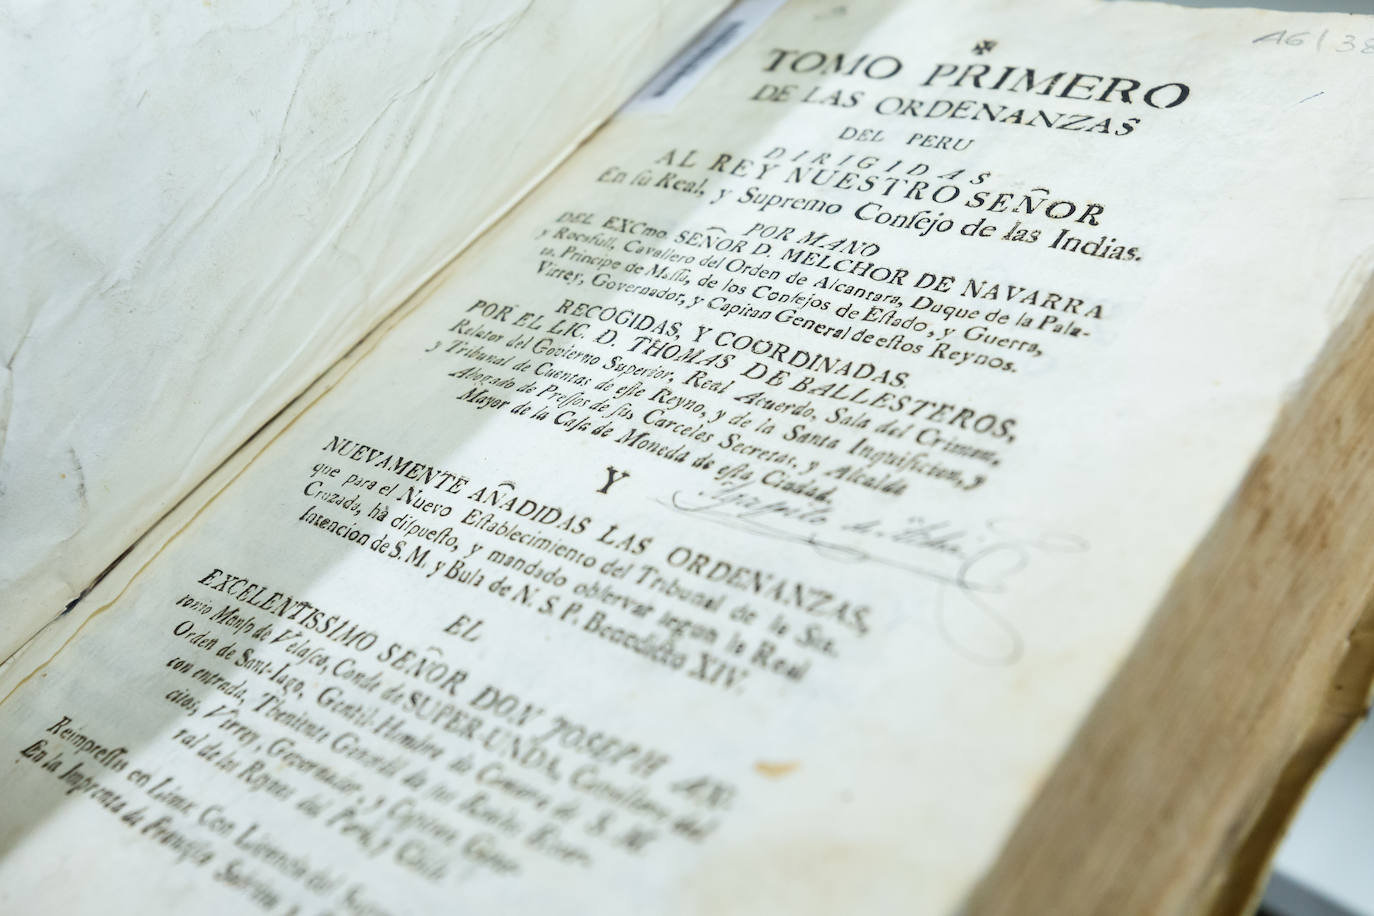 A6/38
TOMO PRIMERO
DE LAS ORDENANZAS
DEL PERU
DIRIGIDAS
AL REY NUESTRO SEÑOR
En ſu Real, y Supremo Conſejo de las Indias.
POR MANO
DEL EXCmo. SEÑOR D. MELCHOR DE NAVARRA
y Rocafull, Cavallero del Orden de Alcantara, Duque de la Pala-
ta, Principe de Maſſa, de los Conſejos de Eſtado, y Guerra,
Virrey, Governador, y Capitan General de eſtos Reynos.
RECOGIDAS, Y COORDINADAS
POR EL LIC. D. THOMAS DE BALLESTEROS,
Relator del Govierno Superior, Real Acuerdo, Sala del Crimen,
y Tribunal de Cuentas de eſte Reyno, y de la Santa Inquiſicion, y
Abogado de Preſſos de ſus Carceles Secretas, y Alcalde
Mayor de la Caſa de Moneda de eſta Ciudad.
Y
NUEVAMENTE AÑADIDAS LAS ORDENANZAS,
que para el Nuevo Eſtablecimiento del Tribunal de la Sta.
Cruzada, ha diſpueſto, y mandado obſervar ſegun la Real
Intencion de S. M. y Bula de N. S. P. Benedicto XIV.
EL
EXCELENTISSIMO SEÑOR DON JOSEPH AN-
tonio Manſo de Velaſco, Conde de SUPER-UNDA, Cavallero del
Orden de Sant-Iago, Gentil-Hombre de Camara de S. M.
con entrada, Theniente General de ſus Reales Exer-
citos, Virrey, Governador, y Capitan Gene-
ral de los Reynos del Perú, y Chile.
Reimpreſſas en Lima: Con Licencia del
En la Imprenta de Franciſco Sobrino